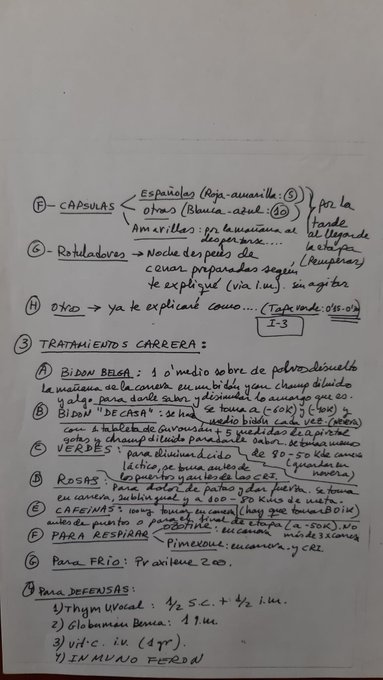 F - CAPSULAS
Españolas (Roja-amarilla: 5)
otras (Blanca-azul: 10)
Amarillas: por la mañana al despertarse....
por la tarde al llegar de la etapa (Recuperar)
G - Rotuladores → Noche después de
cenar preparadas según
te expliqué (vía i.m.) sin agitar
H OTRO → ya te explicaré como.... (Tape verde:
I-3
3 TRATAMIENTOS CARRERA:
A BIDON BELGA: 1 o' medio sobre de polvo disuelto
la mañana de la carrera en un bidón y con champ diluido
y algo para darle sabor y disimular lo amargo que es.
B BIDON "DE CASA": se toma a (-60K) y (-10K)
medio bidón cada vez. (nevera)
con 1 tableta de Guronsan + 5 medidas de
gotas y champ diluido para darle sabor. se toma
C VERDES: para eliminar ácido de 80-50K de carrera
láctico, se toma antes de (guardar en nevera)
los puertos y antes de las CRI.
D ROSAS: para dolor de patas y dar fuerza. se toma
en carrera, sublingual y a 100-80 Kms de meta.
E CAFEINAS: 100mg tomar en carrera (hay que tomar
antes de puertos o para el final de etapa (a -50K). NO
más de 3 x carrera
F PARA RESPIRAR
en carrera
Pimexone: en carrera y CRI.
G Para FRIO: Praxilene 200.
Para DEFENSAS:
1) Thym Uvocal: 1/2 s.c. + 1/2 i.m.
2) Globuman Berna: 1 i.m.
3) vit-c. i.v. (1 gr).
4) INMUNO FERON